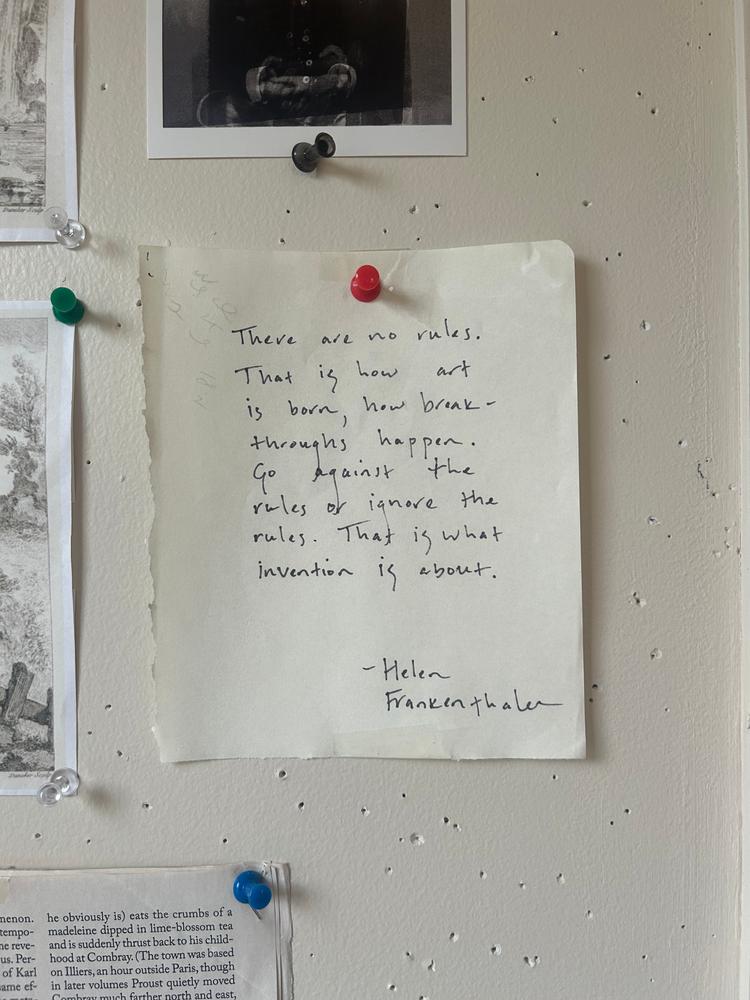 There are no rules.
That is how art
is born, how break-
throughs happen.
Go against the
rules or ignore the
rules. That is what
invention is about.
- Helen
Frankenthaler
menon.
tempo-
ne reve-
us. Per-
of Karl
ame ef-
he obviously is) eats the crumbs of a
madeleine dipped in lime-blossom tea
and is suddenly thrust back to his child-
hood at Combray. (The town was based
on Illiers, an hour outside Paris, though
in later volumes Proust quietly moved
Combray much farther north and east,